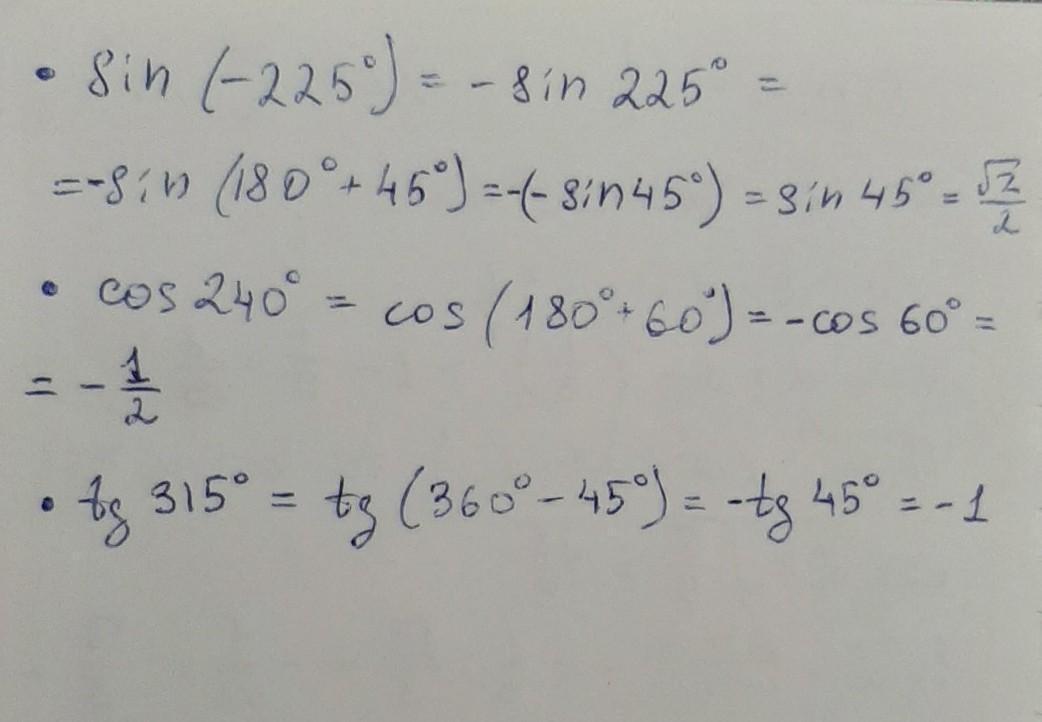 • sin (-225°) = - sin 225° =
= -sin (180° + 45°) = -(- sin 45°) = sin 45° = √2/2
• cos 240° = cos (180° + 60°) = - cos 60° =
= - 1/2
• tg 315° = tg (360° - 45°) = -tg 45° = -1